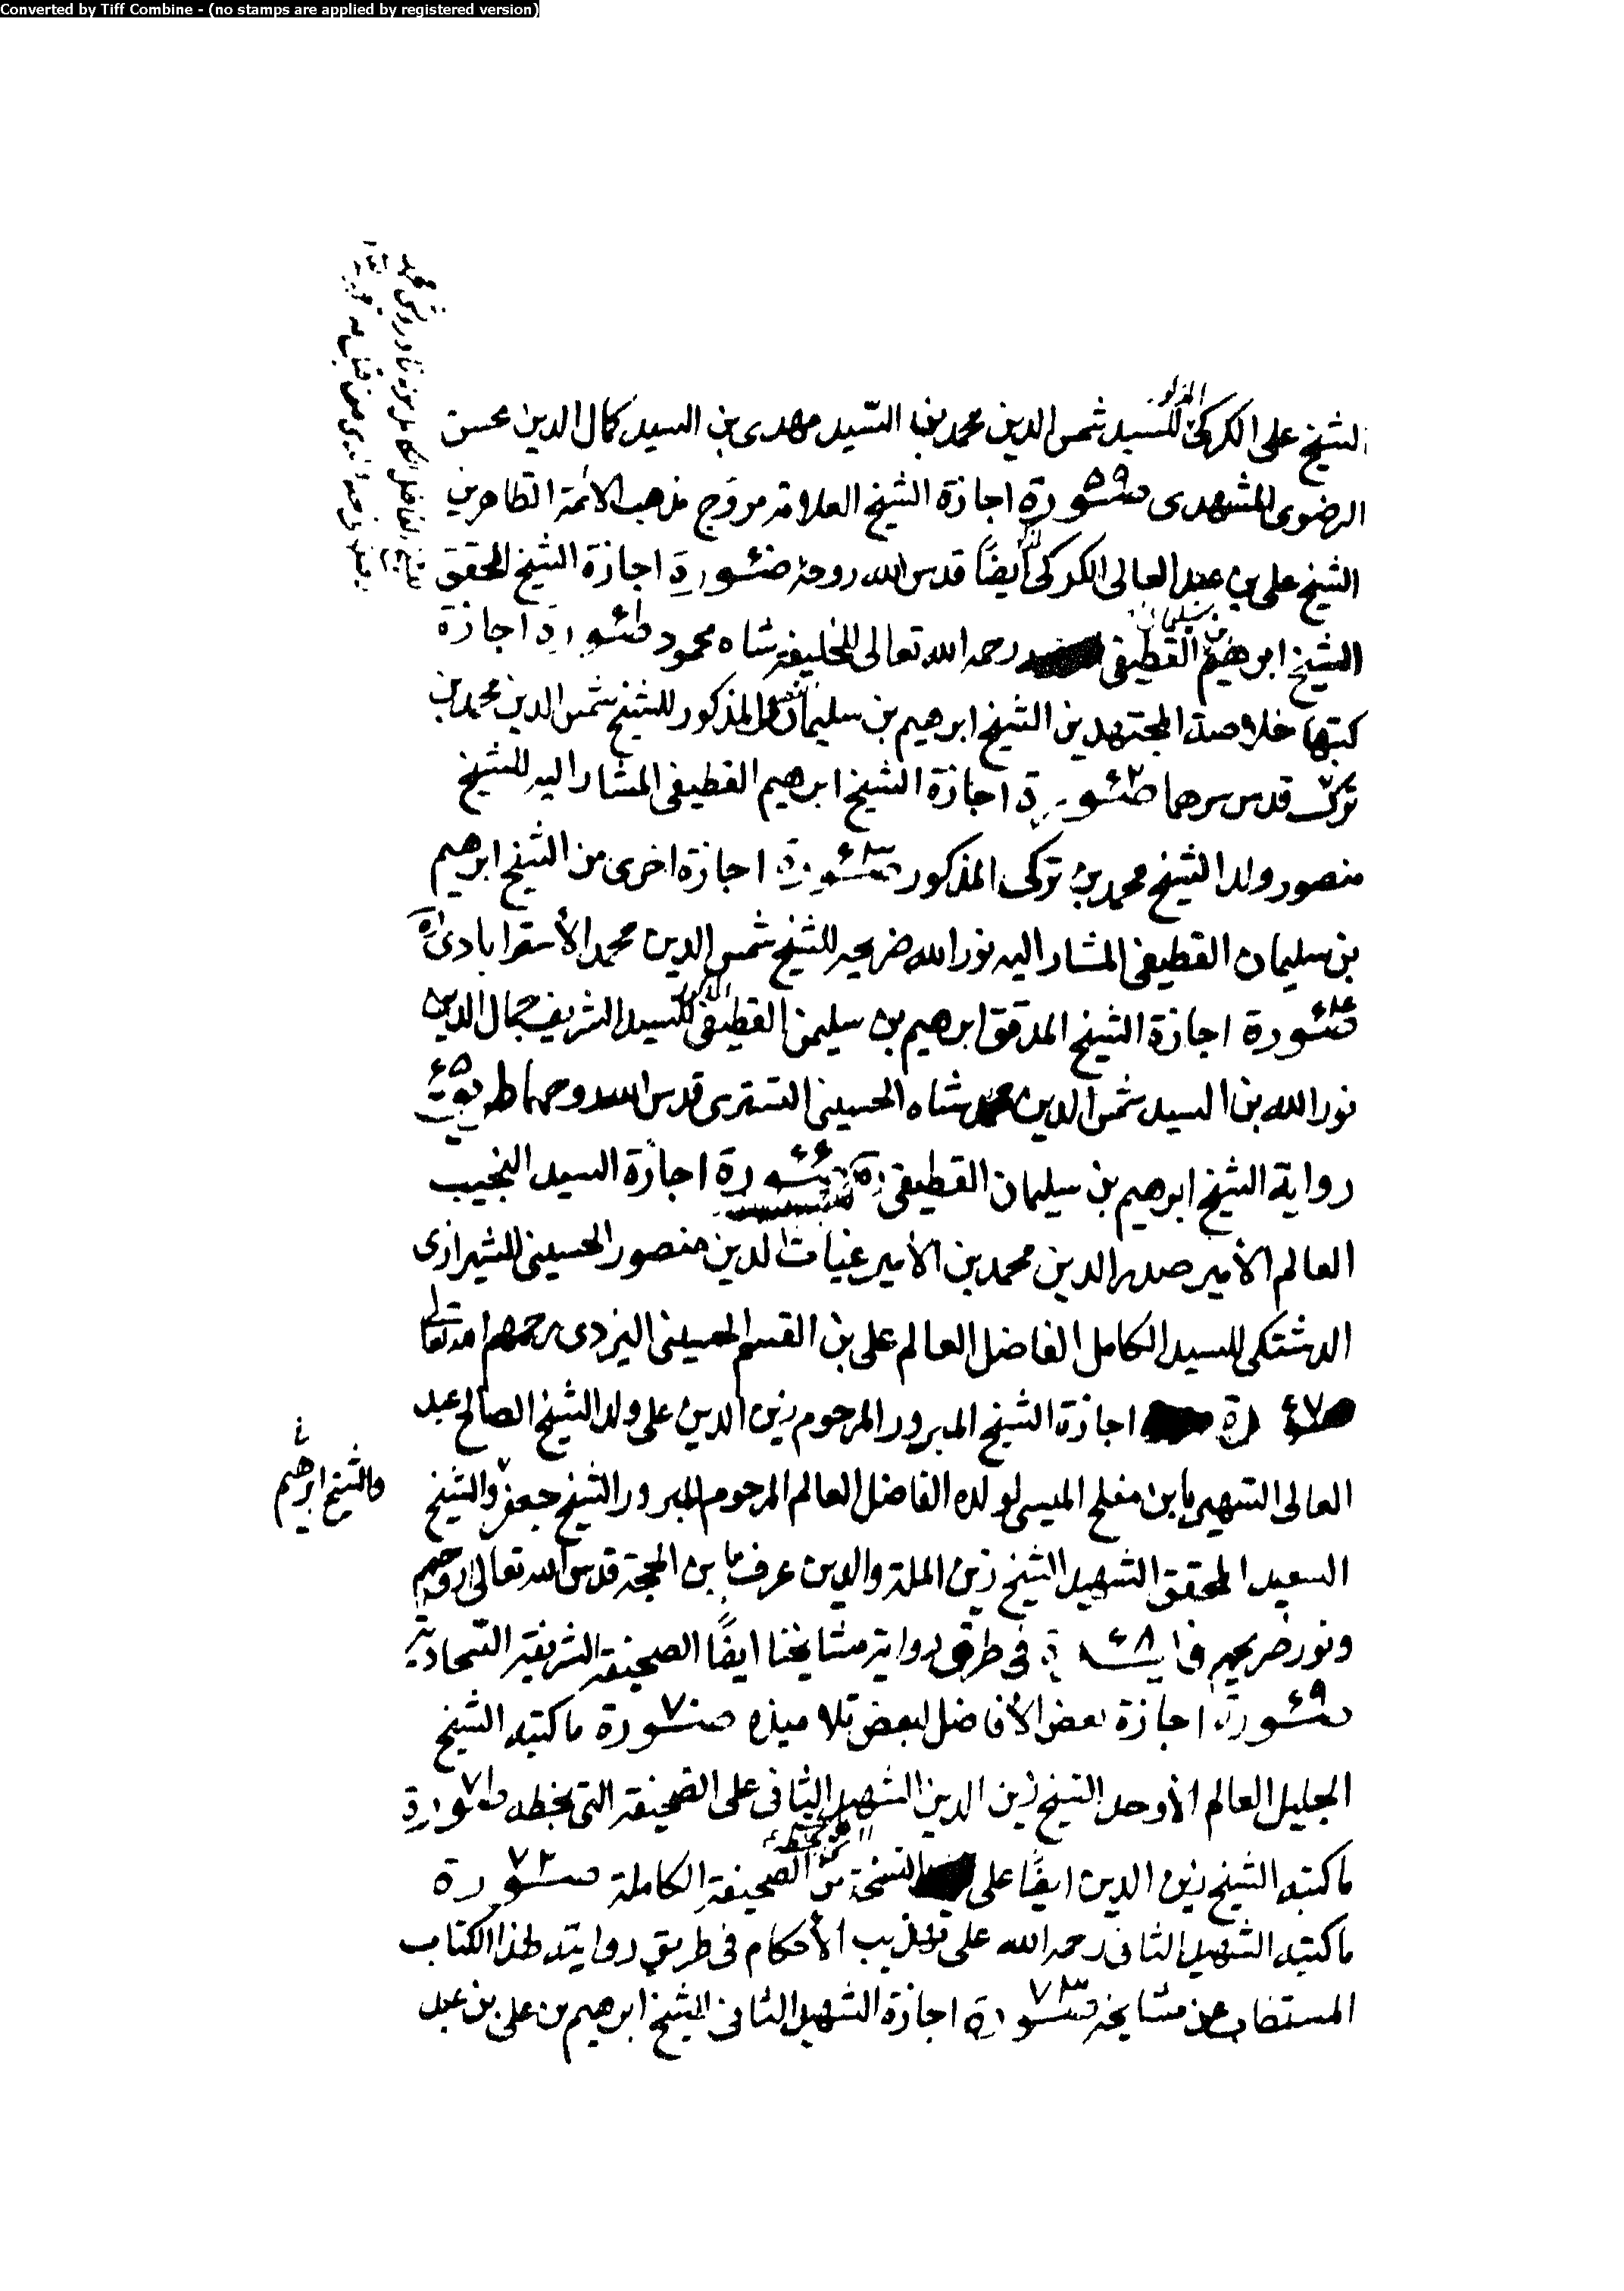 Converted by Tiff Combine - (no stamps are applied by registered version)
الشيخ على الكركى المذكور للسيد شمس الدين محمد بن السّيد مهدى بن السيد كمال الدين محسن
الرضوى المشهدى صورة ٥٩ اجازة الشيخ العلامة مروّج مذهب الائمة الطاهرين
الشيخ على بن عبد العالى الكركى ايضًا قدس الله روحه صورة اجازة الشيخ المحقق
الشيخ ابرهيم بن سليمان القطيفى رحمه الله تعالى للخليفة شاه محمود صورة اجازة
كتبها خلاصة المجتهدين الشيخ ابرهيم بن سليمان المذكور للشيخ شمس الدين محمد بن
تركى قدس سرهما صورة ٦٢ اجازة الشيخ ابرهيم القطيفى المشار اليه للشيخ
منصور ولد الشيخ محمد بن تركى المذكور صورة ٦٣ اجازة اخرى من الشيخ ابرهيم
بن سليمان القطيفى المشار اليه نور الله ضريحه للشيخ شمس الدين محمد الأسترابادى ره
صورة ٦٤ اجازة الشيخ المدقق ابرهيم بن سليمن القطيفى المذكور للسيد الشريف جمال الدين
نور الله بن السيد شمس الدين محمد شاه الحسينى التسترى قدس الله روحهما طريق ٦٥
رواية الشيخ ابرهيم بن سليمان القطيفى ره صورة ٦٦ اجازة السيد النجيب
العالم الأمير صدر الدين محمد بن الأمير غياث الدين منصور الحسينى الشيرازى
الدشتكى للسيد الكامل الفاضل العالم على بن القسم الحسينى اليزدى رحمهم الله تعالى
صورة ٦٧ اجازة الشيخ المبرور المرحوم زين الدين على ولد الشيخ الصالح عبد
العالى الشهير بابن مفلح الميسى لولده الفاضل العالم المرحوم المبرور الشيخ جعفر والشيخ
والشيخ ابرهيم
السعيد المحقق الشهيد الشيخ زين الملة والدين عرف بابن الحجة قدس الله تعالى روحهم
ونور ضريحهم ٦٨ فى طرق رواية مشايخنا ايضًا الصحيفة الشريفة السّجادية
صورة ٦٩ اجازة بعض الأفاضل لبعض تلاميذه صورة ٧٠ ما كتبه الشيخ
الجليل العالم الأوحد الشيخ زين الدين الشهيد الثانى على الصحيفة التى بخطه صورة ٧١
ما كتبه الشيخ زين الدين ايضًا على النسخة من الصحيفة الكاملة صورة ٧٢
ما كتبه الشهيد الثانى رحمه الله على تهذيب الأحكام فى طريق روايته لهذا الكتاب
المستطاب عن مشايخه صورة ٧٣ اجازة الشهيد الثانى للشيخ ابرهيم بن على بن عبد